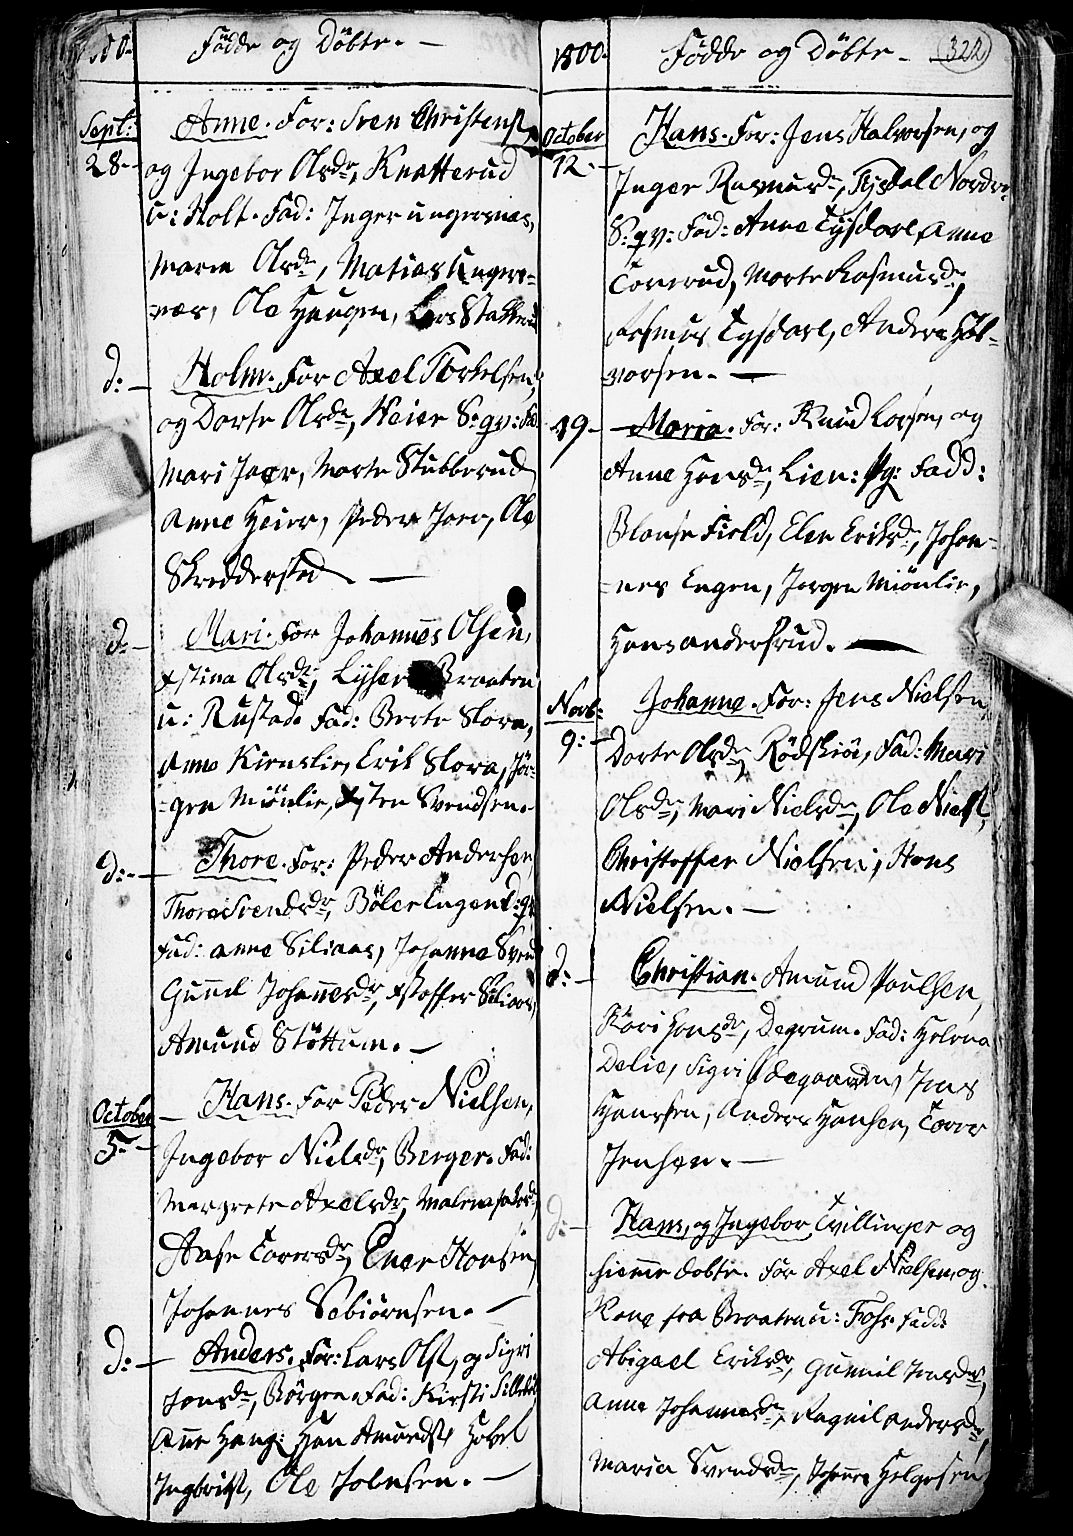 Fødde og Døbte. —
Sept:
28. —
Anne. For: Sven Christens.
og Ingebor Olsdr, Knatterud
u: Holt. Fad: Inger ungersnæs,
Maren Olsdr, Matias Ungers-
-næs, Ole Haugen, Lars Stabberud
d: —
Holm. For Axel Torkelsen,
og Dorte Olsdr, Heier S: gv: Fad
Mari Jaer, Marte Stubberud
Anne Heier, Peder Jaer, Ole
Skredderstad —
d: —
Mari. For Johannes Olsen,
Xstina Olsdr, Lyser Braaten
u: Rustad. Fad: Berte Slora,
Anne Kiensli, Erik Slora, Jør-
-gen Miønlie, Xsten Svendsen.
d: —
Thore. For: Peder Andersen,
Thore Svendsdr, Böler Engen S: gv
Fad: Anne Siliaas, Johanne Svend
Gunnil Johannesdr, Xstoffer Siliaas,
Amund Støttum. —
October
5. —
Hans. For Peder Nielsen,
Ingebor Nielsdr, Berger. Fad:
Margrete Axelsdr, Malene
Aase Torersdr, Ener Hansen
Johannes Sebiørnsen. —
d: —
Anders. For: Lars Ols., og Sigri
Jonsdr, Børgen. Fad: Kirsti
Ane Haug: Han Amunds. Høbel
Ingbrits., Ole Johnsen. —
1800. Fødde og Døbte — 322
October
12. —
Hans. For: Jens Halvorsen, og
Inger Rasmusdr, Tysdal Nordre
S: gv: Fad: Anne Tysdal, Anne
Torerud, Marte Rasmusdr,
Rasmus Tysdal, Anders Hal-
-vorsen. —
19 —
Maria. For: Knud Larsen, og
Anne Hansdr, Lien: Pg: Fadd:
Blanse Field, Elen Eriksdr, Johan-
-nes Engen, Jørgen Miønlie,
Hans Andersrud. —
Novb:
9: —
Johanne. For: Jens Nielsen,
Dorte Olsdr, Rødskiø, Fad: Mari
Olsdr, Mari Nielsdr, Ole Niels.,
Christoffer Nielsen, Hans
Nielsen. —
d: —
Christian. Amund Poulsen,
Kari Hansdr, Degrum. Fad: Helena
Delie, Sigri Ødegaarden, Jens
Hanssen, Anders Hansen, Torer
Jensen. —
d: —
Hans, og Ingebor Tvillinger og
hiemme døbte. For Axel Nielsen, og
Kone fra Braaten u: Foss. Fadd:
Abigael Eriksdr, Gunnil Jonsdr,
Anne Johannesdr, Ragnil Andersdr,
Maria Svendsdr, Johannes Helgesen